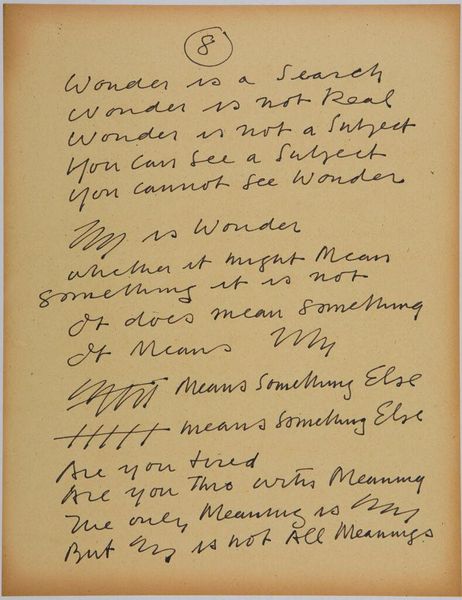 8
Wonder is a Search
Wonder is not Real
Wonder is not a Subject
You can see a Subject
You cannot see Wonder
is Wonder
whether it might Mean
Something it is not
It does mean something
It Means
Means Something Else
means something Else
Are you tired
Are you Thro with Meaning
The only Meaning is
But is not All Meanings